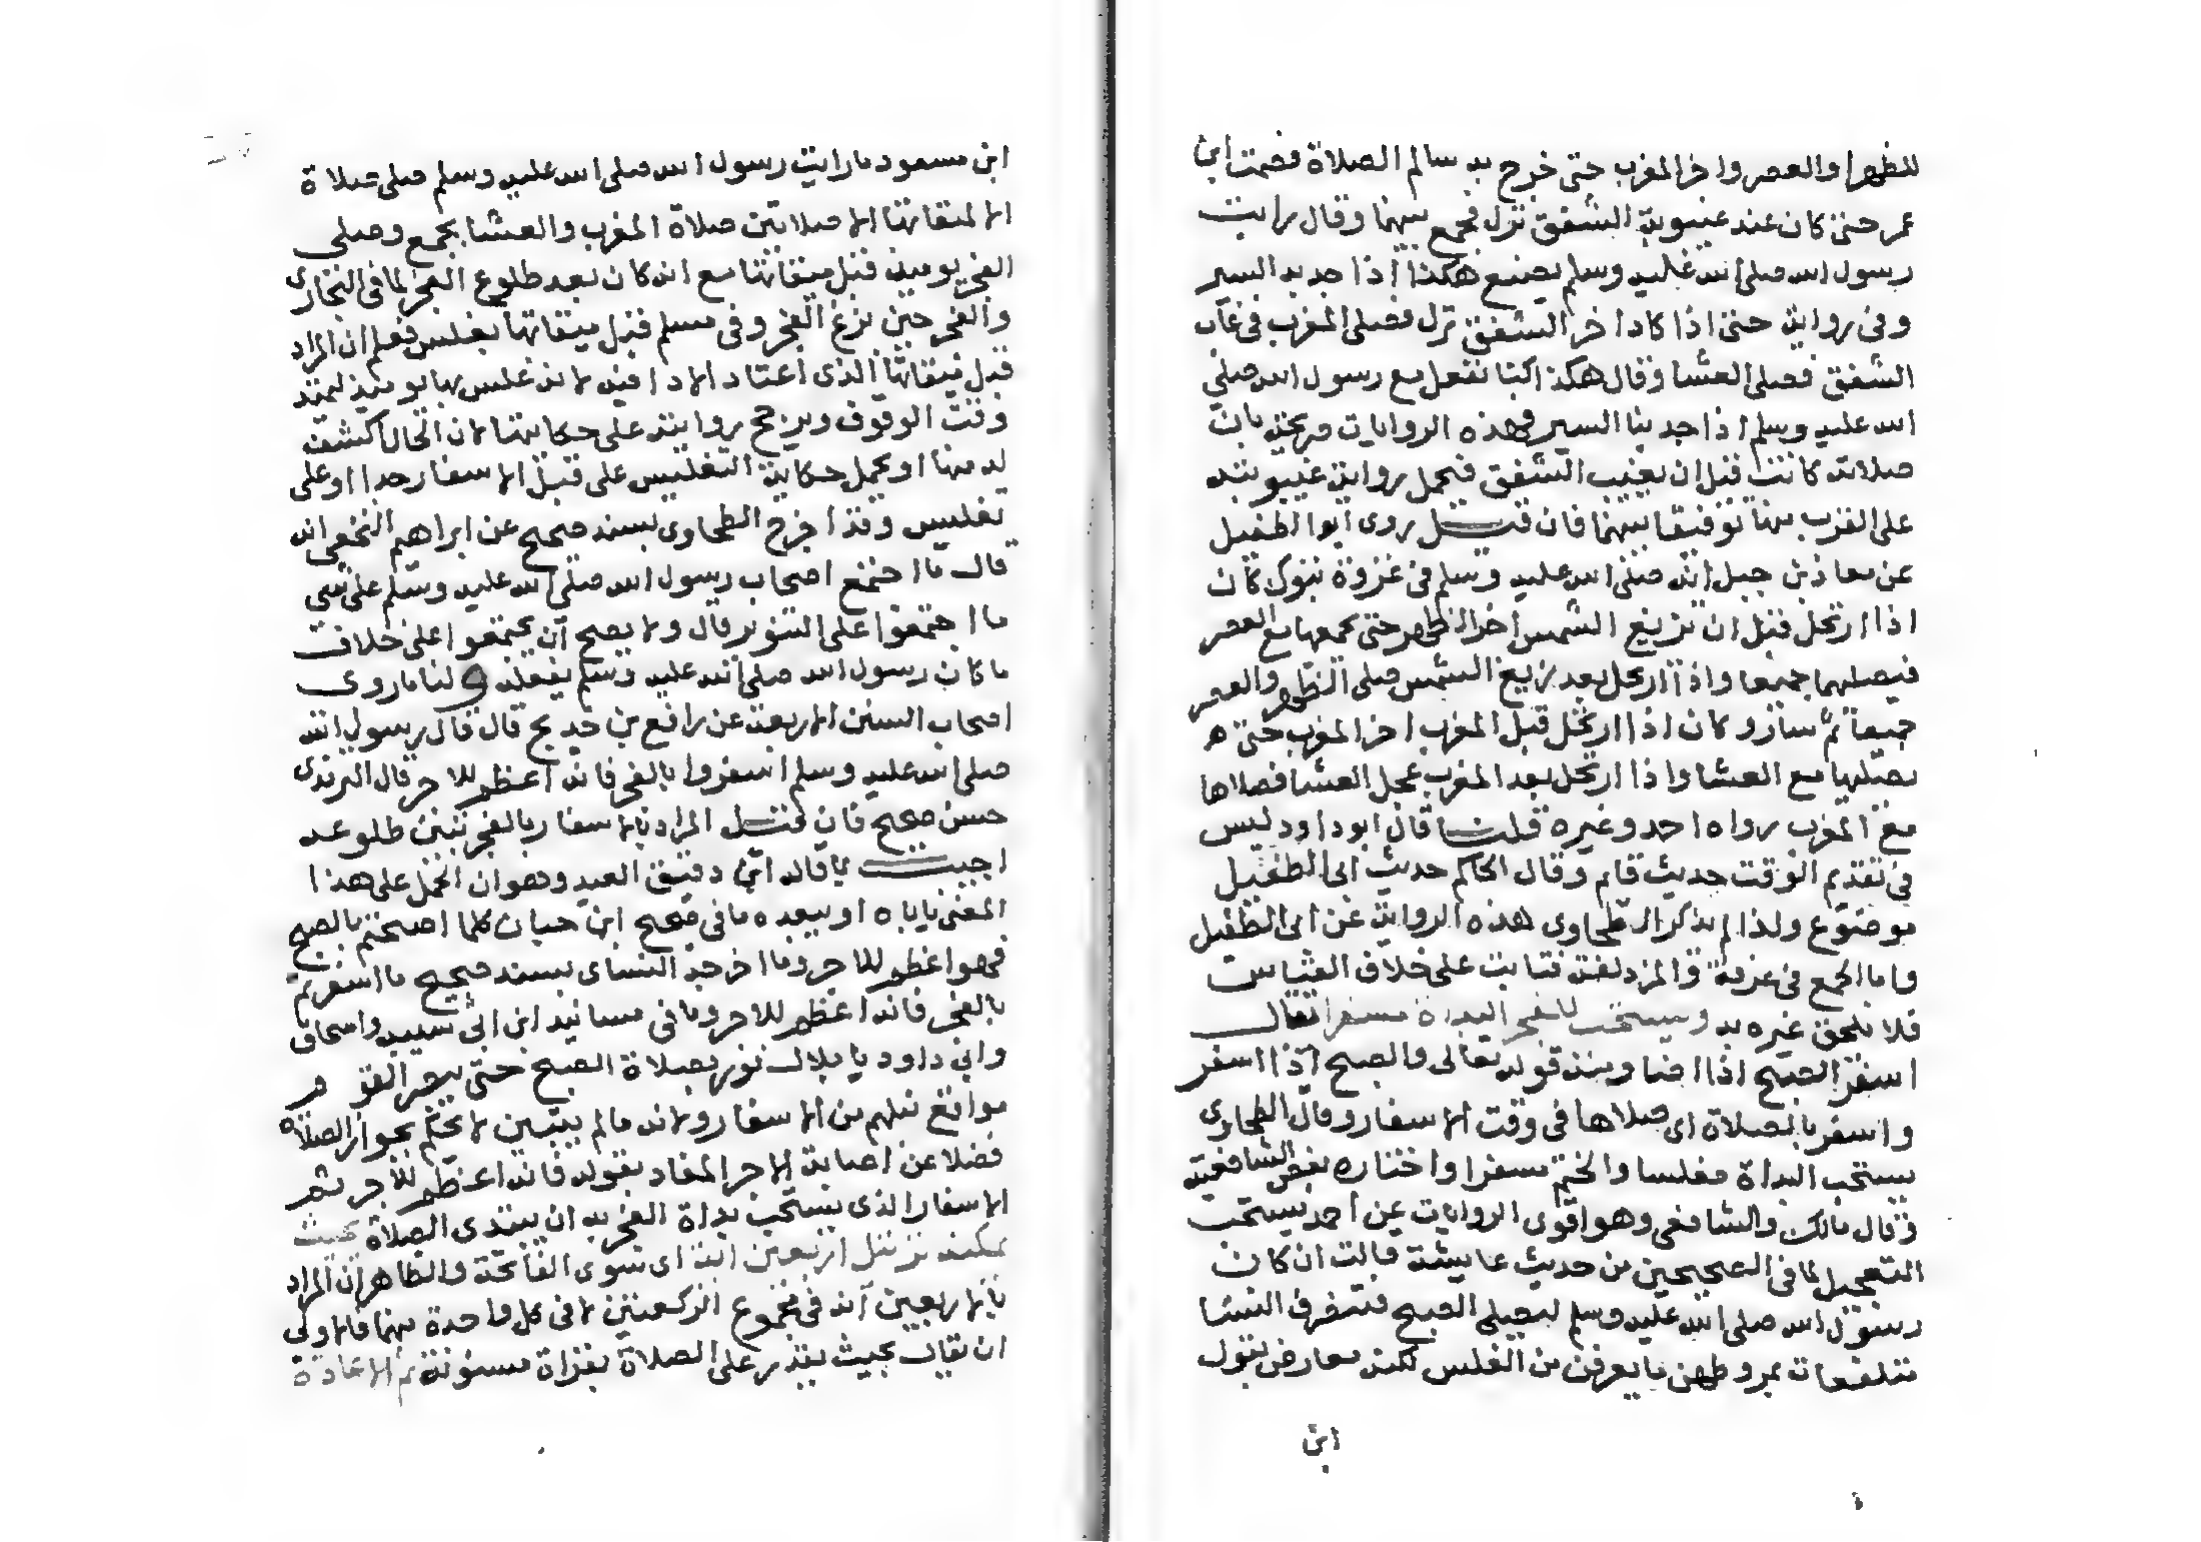 للظهر والعصر واخر المغرب حتى خرج به سالم الصلاة فصمت ابن
عمر حتى كان عند غيبوبة الشفق نزل فجمع بينهما وقال رايت
رسول الله صلى الله عليه وسلم يصنع هكذا اذا جد به السير
وفى رواية حتى اذا كاد اخر الشفق نزل فصلى المغرب فى غاب
الشفق فصلى العشا وقال هكذا كنا نفعل مع رسول الله صلى
الله عليه وسلم اذا جد بنا السير فهذه الروايات صريحة بان
صلاته كانت قبل ان يغيب الشفق فتحمل رواية غيبوبته
على القرب منها توفيقا بينهما فان قيل روى ابو الطفيل
عن معاذ بن جبل انه صلى الله عليه وسلم فى غزوة تبوك كان
اذا ارتحل قبل ان تزيغ الشمس اخر الظهر حتى يجمعها مع العصر
فيصليهما جميعا واذا ارتحل بعد زيغ الشمس صلى الظهر والعصر
جميعا ثم سار وكان اذا ارتحل قبل المغرب اخر المغرب حتى
يصليها مع العشا واذا ارتحل بعد المغرب عجل العشا فصلاها
مع المغرب رواه احمد وغيره قلنا قال ابو داود ليس
فى تقديم الوقت حديث قايم وقال الحاكم حديث ابى الطفيل
موضوع ولذا لم يذكر الطحاوى هذه الرواية عن ابى الطفيل
واما الجمع فى عرفة والمزدلفة فثابت على خلاف القياس
فلا يلحق غيره به ويستحب للفجر البداة مسفرا يقال
اسفر الصبح اذا اضا ومنه قوله تعالى والصبح اذا اسفر
واسفر بالصلاة اى صلاها فى وقت الاسفار وقال الطحاوى
يستحب البداة مغلسا والختم مسفرا واختاره بعض الشافعية
وقال مالك والشافعى وهو اقوى الروايات عن احمد يستحب
التعجيل لما فى الصحيحين من حديث عايشة قالت ان كان
رسول الله صلى الله عليه وسلم ليصلى الصبح فتنصرف النسا
متلفعات بمروطهن ما يعرفن من الغلس لكنه معارض بقول
ابن
ابن مسعود ما رايت رسول الله صلى الله عليه وسلم صلى صلاة
الا لميقاتها الا صلاتين صلاة المغرب والعشا بجمع وصلى
الفجر يوميذ قبل ميقاتها مع انه كان بعد طلوع الفجر لما فى البخارى
والفجر حين بزغ الفجر وفى مسلم قبل ميقاتها بغلس فعلم ان المراد
قبل ميقاتها الذى اعتاد الادا فيه لانه غلس بها يوميذ ليمتد
وقت الوقوف ويرجح روايته على حكايتها لان الحال اكشف
له منها او يحمل حكاية التغليس على قبل الاسفار جدا او على
تغليس وقد اخرج الطحاوى بسند صحيح عن ابراهيم النخعى انه
قال ما اجتمع اصحاب رسول الله صلى الله عليه وسلم على شى
ما اجتمعوا على التنوير قال ولا يصح ان يجتمعوا على خلاف
ما كان رسول الله صلى الله عليه وسلم يفعله ولنا ما روى
اصحاب السنن الاربعة عن رافع بن خديج قال قال رسول الله
صلى الله عليه وسلم اسفروا بالفجر فانه اعظم للاجر قال الترمذى
حسن صحيح فان قيل المراد بالاسفار بالفجر تبين طلوعه
اجيب بما قاله ابن دقيق العيد وهو ان الحمل على هذا
المعنى ياباه او يبعده ما فى صحيح ابن حبان كلما اصبحتم بالصبح
فهو اعظم للاجر وما اخرجه النساى بسند صحيح ما اسفرتم
بالفجر فانه اعظم للاجر وما فى مسانيد ابن ابى شيبه واسحاق
وابى داود يا بلال نور بصلاة الصبح حتى يبصر القوم
مواقع نبلهم من الاسفار ولانه ما لم يتبين لا يحكم بجواز الصلاة
فضلا عن اصابة الاجر المفاد بقوله فانه اعظم للاجر ثم
الاسفار الذى يستحب بداة الفجر به ان يبتدى الصلاة بحيث
يمكنه ترتيل اربعين اية اى سوى الفاتحة والظاهر ان المراد
بالاربعين انه فى مجموع الركعتين لا فى كل واحدة منهما فالاولى
ان يقال بحيث يقدر على الصلاة بقراة مسنونة ثم الاعادة